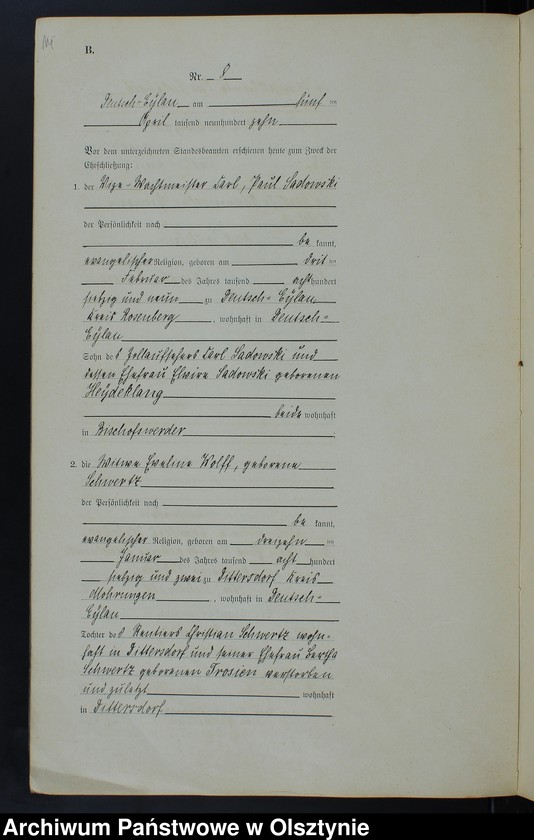 B.
Nr. 8
Deutsch-Eylau am fünf ten
April tausend neunhundert zehn
Vor dem unterzeichneten Standesbeamten erschienen heute zum Zweck der
Eheschließung:
1. der Vize-Wachtmeister Karl, Paul Sadowski
der Persönlichkeit nach
be kannt,
evangelischer Religion, geboren am drit ten
Februar des Jahres tausend acht hundert
siebzig und neun zu Deutsch-Eylau
Kreis Rosenberg, wohnhaft in Deutsch-
Eylau
Sohn des Zollaufsehers Karl Sadowski und
dessen Ehefrau Elwire Sadowski geborenen
Heydeklang
beide wohnhaft
in Bischofswerder.
2. die Witwe Eveline Wolff, geborene
Schwertz
der Persönlichkeit nach
be kannt,
evangelischer Religion, geboren am dreizehn ten
Januar des Jahres tausend acht hundert
siebzig und zwei zu Dittersdorf Kreis
Mohrungen, wohnhaft in Deutsch-
Eylau
Tochter des Rentiers Christian Schwertz wohn-
haft in Dittersdorf und seiner Ehefrau Bertha
Schwertz geborenen Trosien verstorben
und zuletzt wohnhaft
in Dittersdorf
Archiwum Państwowe w Olsztynie